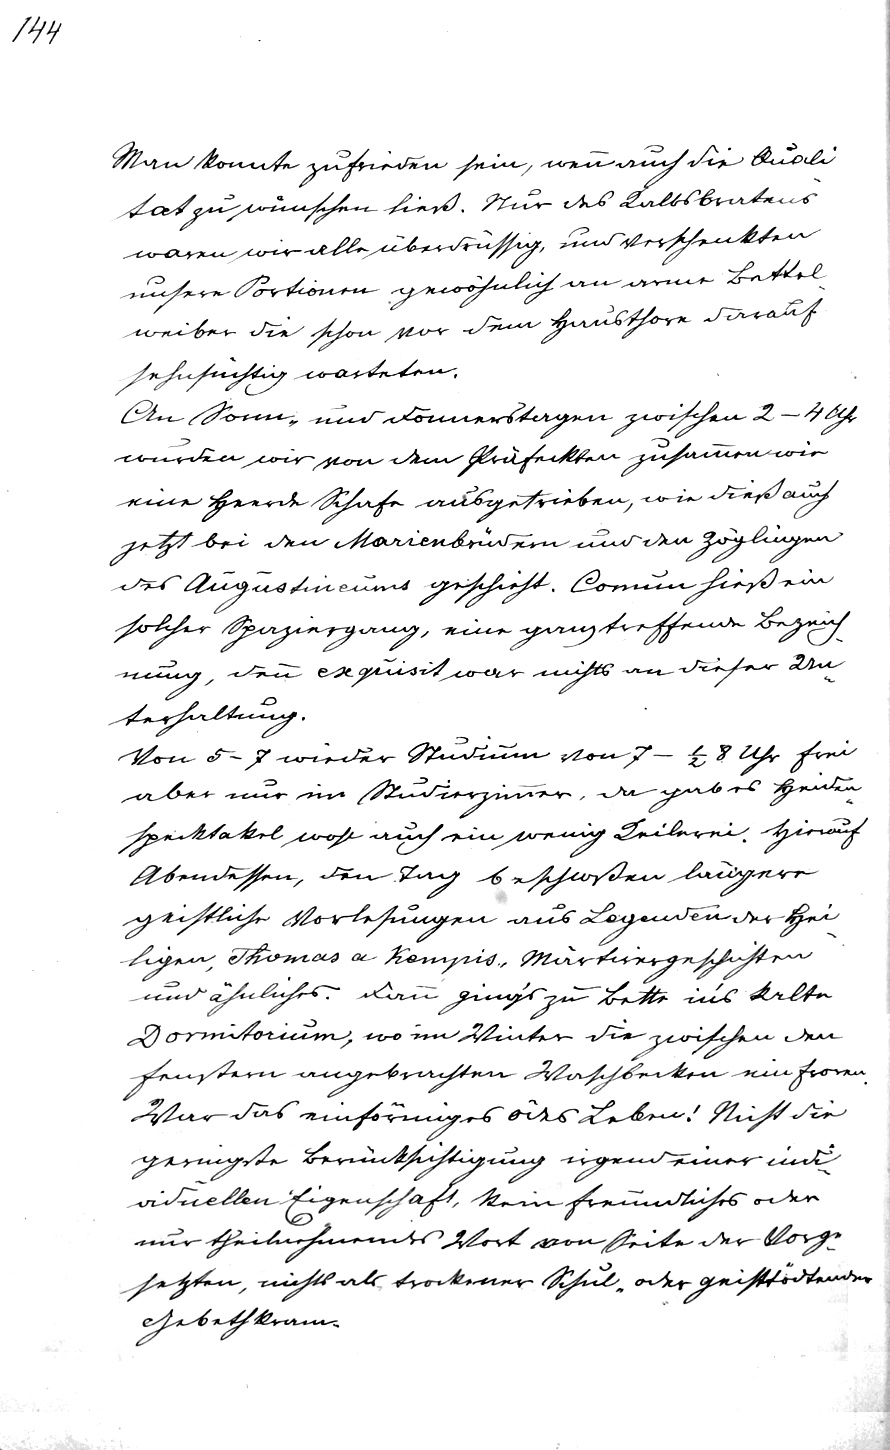 144
Man konnte zufrieden sein, wen̄ auch die Quali
tat zu wünschen ließ. Nur des Kalbsbratens
waren wir alle überdrüssig, und verschenkten
unsere Portionen gewöhnlich an arme Bettel-
weiber die schon vor dem Hausthore darauf
sehnsüchtig warteten.
An Sonn- und Donnerstagen zwischen 2 – 4 Uhr
wurden wir von dem Präfeckten zusam̄en wie
eine Heerde Schafe ausgetrieben, wie dieß auch
jetzt bei den Marienbrüdern und den Zöglingen
des Augustineums geschieht. Comun hieß ein
solcher Spaziergang, eine ganz treffende Bezeich-
nung, den̄ exquisit war nichts an dieser Un-
terhaltung.
Von 5 – 7 wieder Studium von 7 – ½ 8 Uhr frei
aber nur im Studierzim̄er, da gab es Heiden-
specktakel wohl auch ein wenig Keilerei. Hierauf
Abendessen, den Tag beschloßen längere
geistliche Vorlesungen aus Legenden der Hei-
ligen, Thomas a Kempis, Märtirergeschichten
und ähnliches. Dan̄ ging's zu Bette in's kalte
Dormitorium, wo im Winter die zwischen den
Fenstern angebrachten Waschbecken einfroren.
War das einförmiges ödes Leben! Nicht die
geringste Berücksichtigung irgend einer indi-
viduellen Eigenschaft, kein freundliches oder
nur theilnehmendes Wort von Seite der Vorge-
setzten, nichts als trockener Schul- oder geisttödtender
Gebethkram.